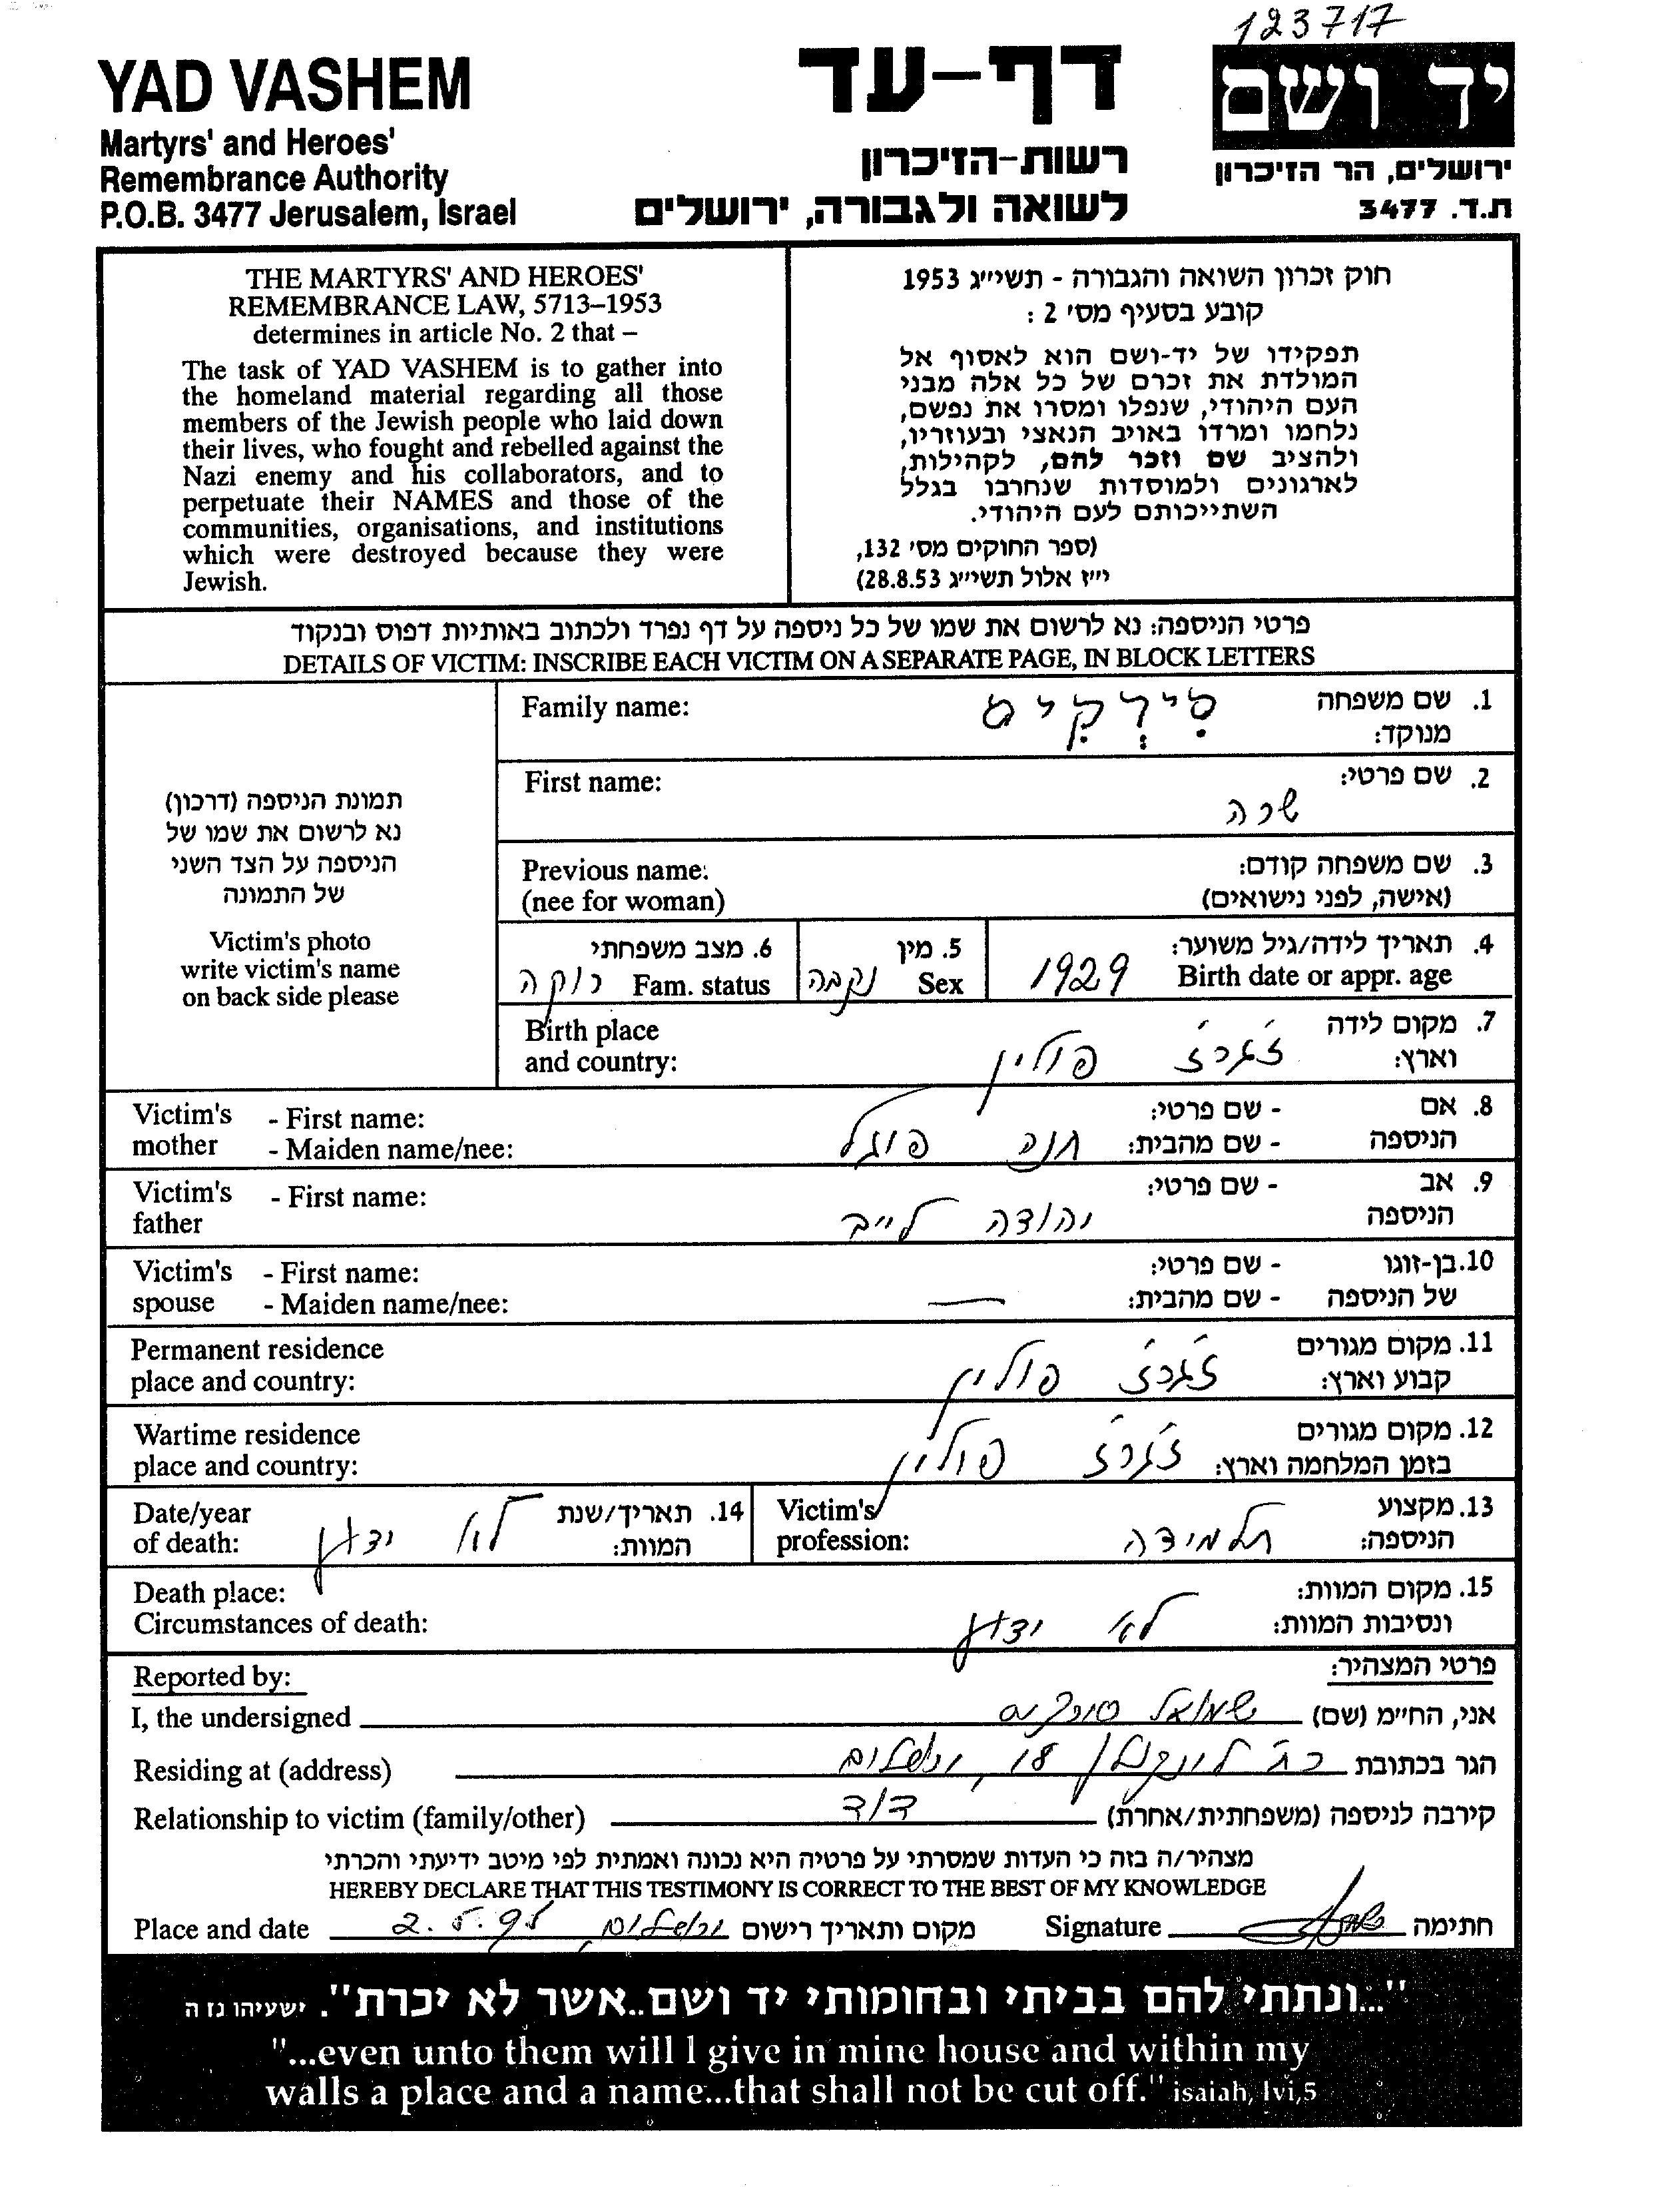 123717
YAD VASHEM
Martyrs' and Heroes'
Remembrance Authority
P.O.B. 3477 Jerusalem, Israel
דף-עד
רשות-הזיכרון
לשואה ולגבורה, ירושלים
יד ושם
ירושלים, הר הזיכרון
ת.ד. 3477
THE MARTYRS' AND HEROES'
REMEMBRANCE LAW, 5713–1953
determines in article No. 2 that –
The task of YAD VASHEM is to gather into
the homeland material regarding all those
members of the Jewish people who laid down
their lives, who fought and rebelled against the
Nazi enemy and his collaborators, and to
perpetuate their NAMES and those of the
communities, organisations, and institutions
which were destroyed because they were
Jewish.
חוק זכרון השואה והגבורה - תשי״ג 1953
קובע בסעיף מס׳ 2 :
תפקידו של יד-ושם הוא לאסוף אל
המולדת את זכרם של כל אלה מבני
העם היהודי, שנפלו ומסרו את נפשם,
נלחמו ומרדו באויב הנאצי ובעוזריו,
ולהציב שם וזכר להם, לקהילות,
לארגונים ולמוסדות שנחרבו בגלל
השתייכותם לעם היהודי.
(ספר החוקים מס׳ 132,
י״ז אלול תשי״ג 28.8.53)
פרטי הניספה: נא לרשום את שמו של כל ניספה על דף נפרד ולכתוב באותיות דפוס ובנקוד
DETAILS OF VICTIM: INSCRIBE EACH VICTIM ON A SEPARATE PAGE, IN BLOCK LETTERS
תמונת הניספה (דרכון)
נא לרשום את שמו של
הניספה על הצד השני
של התמונה
Victim's photo
write victim's name
on back side please
Family name: סִירְקִיס 1. שם משפחה
מנוקד:
First name: שרה 2. שם פרטי:
Previous name: 3. שם משפחה קודם:
(nee for woman) (אישה, לפני נישואים)
4. תאריך לידה/גיל משוער:
Birth date or appr. age 1929
5. מין
Sex נקבה
6. מצב משפחתי
Fam. status רווקה
Birth place 7. מקום לידה
and country: זגרז פולין וארץ:
Victim's - First name: - שם פרטי: 8. אם
mother - Maiden name/nee: חנה פוגל - שם מהבית: הניספה
Victim's - First name: - שם פרטי: 9. אב
father יהודה לייב הניספה
Victim's - First name: - שם פרטי: 10. בן-זוגו
spouse - Maiden name/nee: — - שם מהבית: של הניספה
Permanent residence 11. מקום מגורים
place and country: זגרז פולין קבוע וארץ:
Wartime residence 12. מקום מגורים
place and country: זגרז פולין בזמן המלחמה וארץ:
Victim's 13. מקצוע
profession: תלמידה הניספה:
Date/year 14. תאריך/שנת
of death: לא ידוע המוות:
Death place: 15. מקום המוות:
Circumstances of death: לא ידוע ונסיבות המוות:
Reported by: פרטי המצהיר:
I, the undersigned שמואל סירקיס אני, החי״מ (שם)
Residing at (address) 18, ירושלים הגר בכתובת
Relationship to victim (family/other) דוד קירבה לניספה (משפחתית/אחרת)
מצהיר/ה בזה כי העדות שמסרתי על פרטיה היא נכונה ואמתית לפי מיטב ידיעתי והכרתי
HEREBY DECLARE THAT THIS TESTIMONY IS CORRECT TO THE BEST OF MY KNOWLEDGE
Place and date ירושלים, מקום ותאריך רישום Signature חתימה
"...ונתתי להם בביתי ובחומותי יד ושם..אשר לא יכרת". ישעיהו נז ה
"...even unto them will I give in mine house and within my
walls a place and a name...that shall not be cut off." isaiah, lvi,5